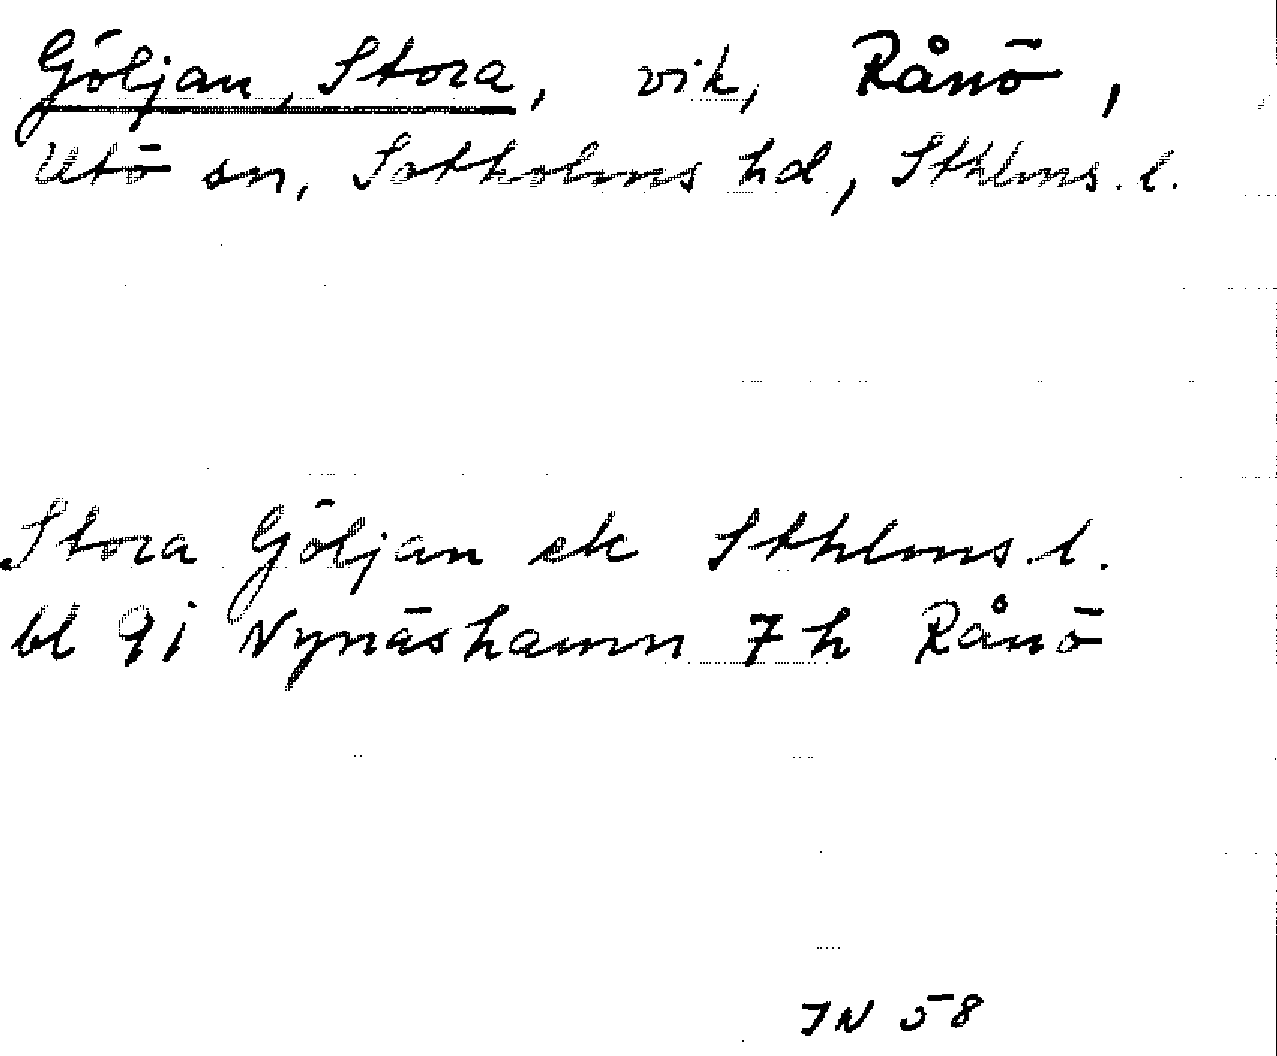 Göljan, Stora, vik, Rånö,
Utö sn, Sotholms hd, Sthlms. l.
Stora Göljan ek Sthlms. l.
bl 9i Nynäshamn 7h Rånö
JN 58